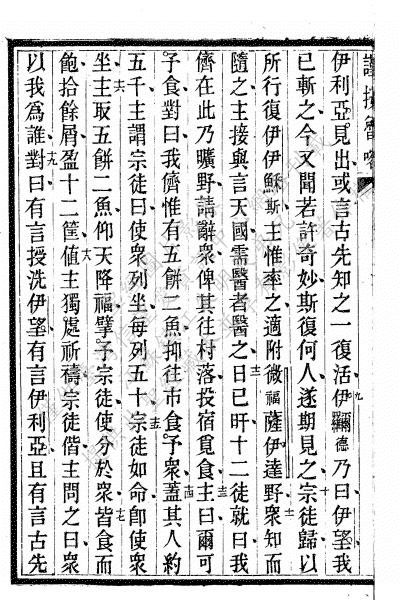 伊利亞見出或言古先知之一復活伊彌德乃曰伊望我
已斬之今又聞若許奇妙斯復何人遂期見之宗徒歸以
所行復伊伊穌斯主惟率之適附微福薩伊達野衆知而
隨之主接與言天國需醫者醫之日已旰十二徒就曰我
儕在此乃曠野請辭衆俾其往村落投宿覓食主曰爾可
予食對曰我儕惟有五餅二魚抑往市食予衆蓋其人約
五千主謂宗徒曰使衆列坐每列五十宗徒如命卽使衆
坐主取五餅二魚仰天降福擘予宗徒使分於衆皆食而
飽拾餘屑盈十二筐値主獨處祈禱宗徒偕主問之曰衆
以我爲誰對曰有言授洗伊望有言伊利亞且有言古先